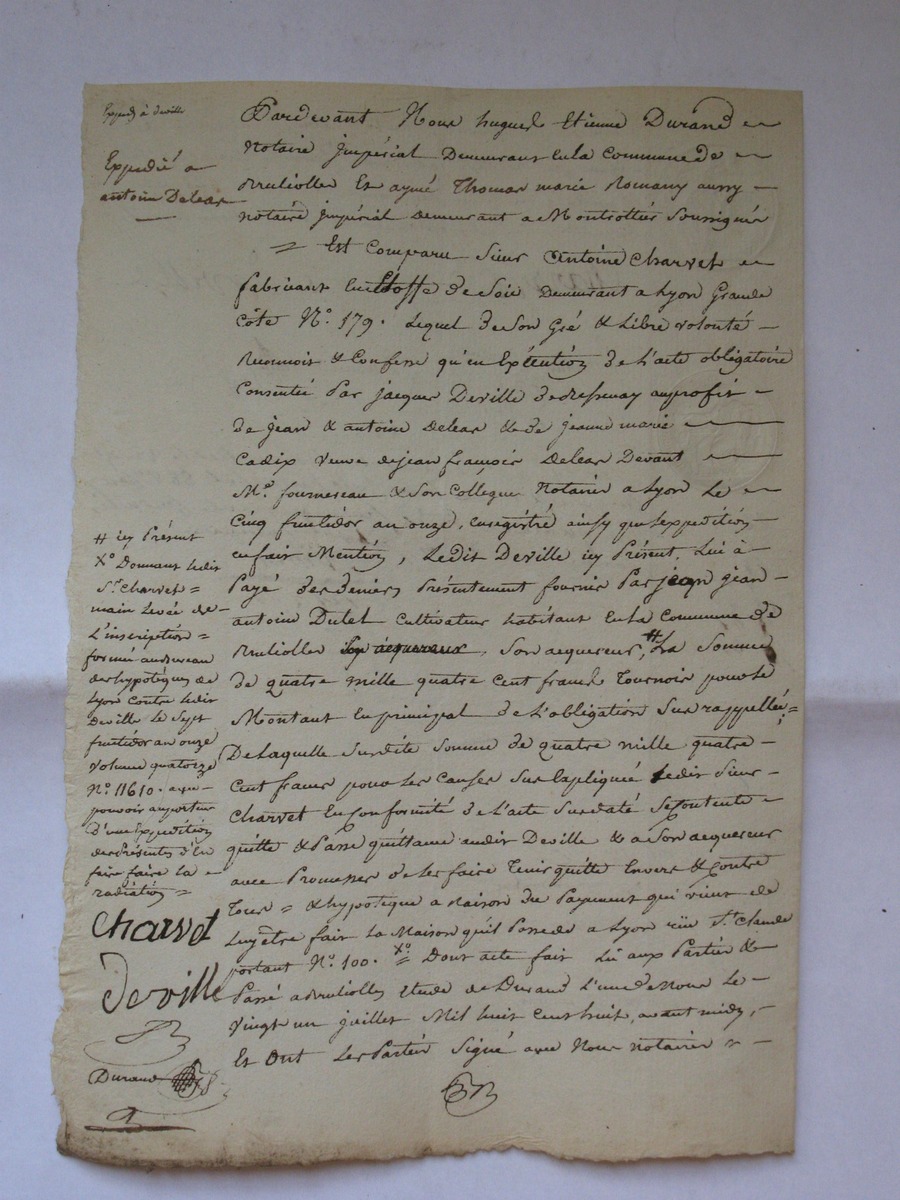 Expédié à deville
Expedié a
antoine Delear
Pardevant Nous hugues Etienne Durand
Notaire Impérial Demeurant En la Commune de
Brulliolles Et aymé Thomas marie Romany aussy
notaire impérial demeurant a Montrottier Soussignés
= Est Comparu Sieur Antoine Charvet
fabricant En Etoffe de Soie Demeurant a Lyon Grande
Côte N° 179. Lequel de Son Gré & Libre volonté
Reconnoit & Confesse qu'en Exécution de L'acte obligatoire
Consentie Par jacques Deville de au profit
de jean & antoine Delear & de jeanne marie
Cadix veuve de jean françois Delear Devant
Me. fournereau & Son Collegue Notaires a Lyon Le
Cinq fructidor an onze, enregistré ainsy que L'expedition
en fait Mention, Ledit Deville icy Présent Lui à
Payé des deniers Présentement fournis Par jean
antoine Dulel Cultivateur habitant En la Commune de
Brulliolles Son acquereur, # La Somme
de quatre mille quatre Cent francs Tournois pour Le
Montant En principal de L'obligation Sus rappellée;
De Laquelle Susdite Somme de quatre mille quatre
Cent francs pour Les Causes Sus Expliquée Ledit Sieur
Charvet En Conformité de L'acte Susdaté Se Contente
quitte & Passe quittance audit Deville & a Son acquereur
avec Promesses de Les faire Tenir quitte Envers & Contre
Tous = & hypotèque a Raison du Payement qui vient de
Luy être fait La Maison qu'il Possede a Lyon rüe St. Claude
portant N° 100. X° = Dont acte fait Lû aux Parties &
Passé a Brulliolles Etude de Durand L'un de Nous Le
vingt un juillet Mil huit Cent huit, avant midy,
Et Ont Les Parties Signé avec Nous notaires
# icy Présent
X° Donnant Ledit
Sr. Charvet =
main Levée de
L'inscription =
formée au Bureau
des hypotèques de
Lyon Contre Ledit
Deville Le Sept
fructidor an onze
volume quatorze
N° 11610. avec
pouvoir au porteur
D'une Expédition
des Présentes d'En
faire faire La
radiation =
Charvet
Deville
Durand